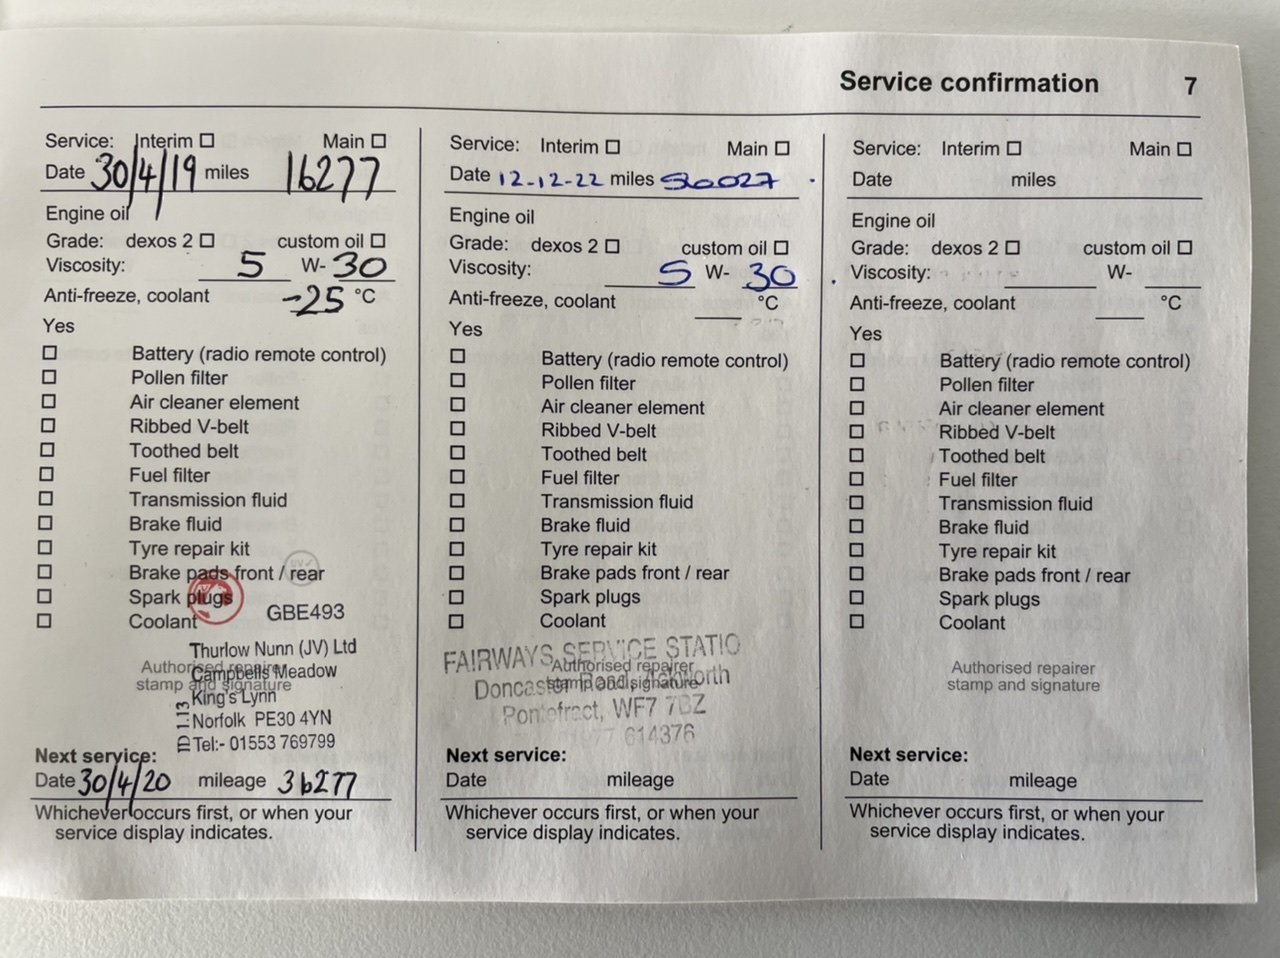 Service confirmation 7
Service: Interim Main
Date 30/4/19 miles 16277
Engine oil
Grade: dexos 2 custom oil
Viscosity: 5 W- 30
Anti-freeze, coolant -25 °C
Yes
Battery (radio remote control)
Pollen filter
Air cleaner element
Ribbed V-belt
Toothed belt
Fuel filter
Transmission fluid
Brake fluid
Tyre repair kit
Brake pads front / rear
Spark plugs
Coolant
GBE493
Thurlow Nunn (JV) Ltd
Campbells Meadow
King's Lynn
Norfolk PE30 4YN
Tel:- 01553 769799
Authorised repairer
stamp and signature
Next service:
Date 30/4/20 mileage 36277
Whichever occurs first, or when your
service display indicates.
Service: Interim Main
Date 12-12-22 miles
Engine oil
Grade: dexos 2 custom oil
Viscosity: 5 W- 30
Anti-freeze, coolant °C
Yes
Battery (radio remote control)
Pollen filter
Air cleaner element
Ribbed V-belt
Toothed belt
Fuel filter
Transmission fluid
Brake fluid
Tyre repair kit
Brake pads front / rear
Spark plugs
Coolant
FAIRWAYS SERVICE STATIO
Doncaster Road, Ackworth
Pontefract, WF7 7BZ
01977 614376
Authorised repairer
stamp and signature
Next service:
Date mileage
Whichever occurs first, or when your
service display indicates.
Service: Interim Main
Date miles
Engine oil
Grade: dexos 2 custom oil
Viscosity: W-
Anti-freeze, coolant °C
Yes
Battery (radio remote control)
Pollen filter
Air cleaner element
Ribbed V-belt
Toothed belt
Fuel filter
Transmission fluid
Brake fluid
Tyre repair kit
Brake pads front / rear
Spark plugs
Coolant
Authorised repairer
stamp and signature
Next service:
Date mileage
Whichever occurs first, or when your
service display indicates.